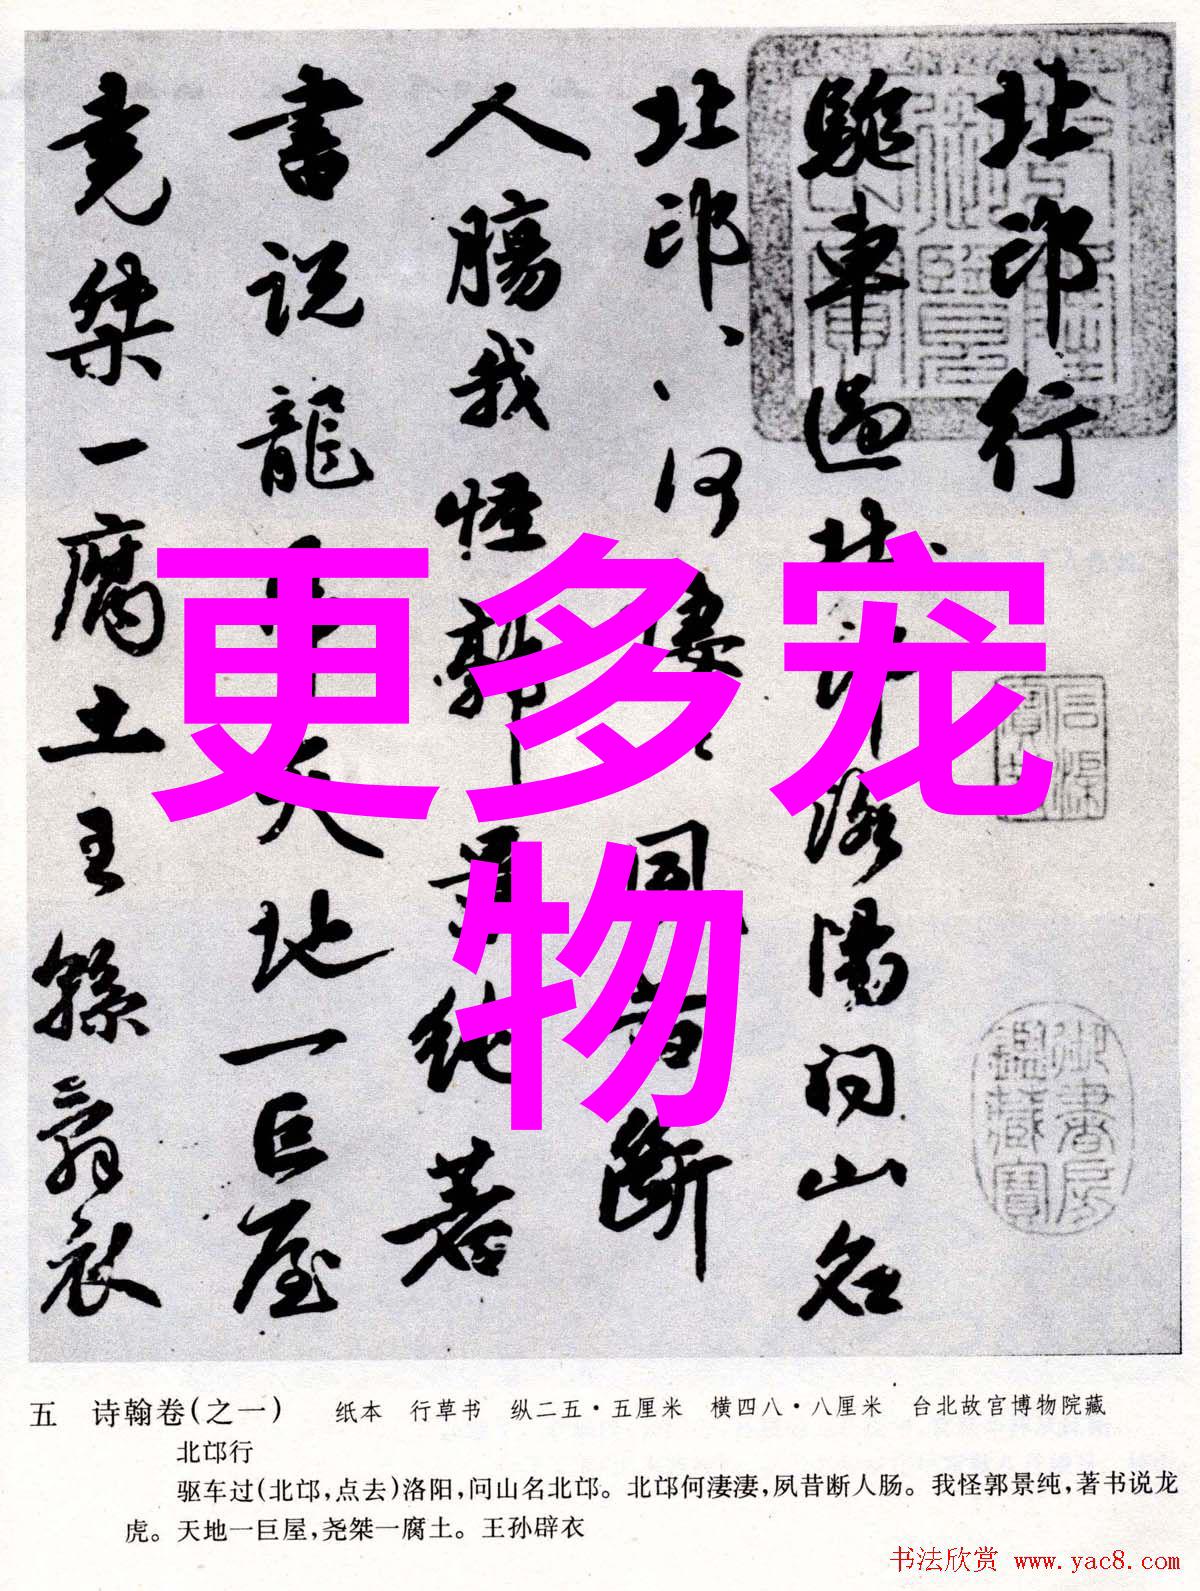 北邙行
驅車過北邙洛陽問山名
北邙、、何淒、夙昔斷
人腸我怪郭景純著
書說龍虎天地一巨屋
堯桀一腐土王孫辟衣
御書房鑑藏寶
更多宠
物
五 诗翰卷(之一) 纸本 行草书 纵二五·五厘米 横四八·八厘米 台北故宫博物院藏
北邙行
驱车过(北邙,点去)洛阳,问山名北邙。北邙何淒淒,夙昔断人肠。我怪郭景纯,著书说龙
虎。天地一巨屋,尧桀一腐土。王孙辟衣
书法欣赏 www.yac8.com